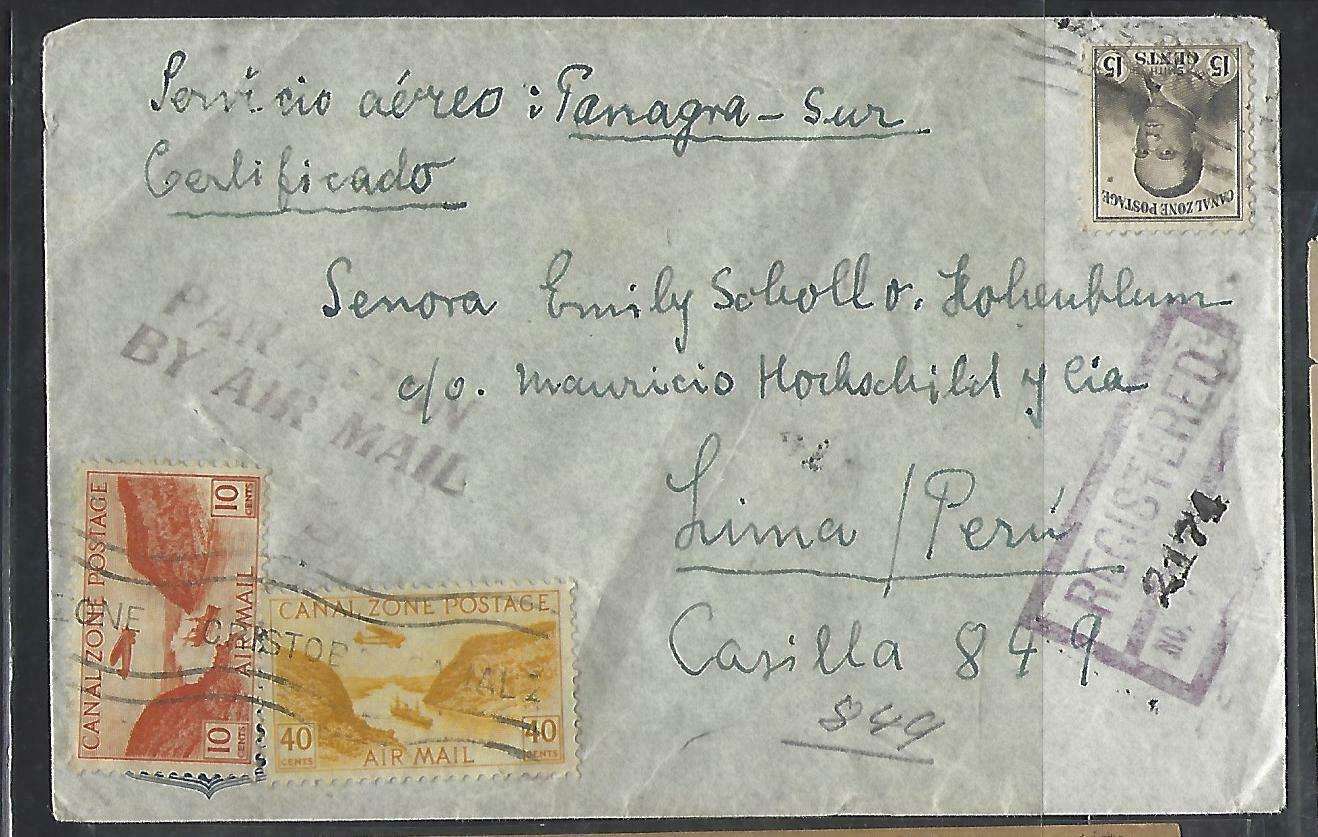 Servicio aéreo: Panagra - Sur
Certificado
15 CENTS 15
CANAL ZONE POSTAGE
Senora Emily Scholl v. Hohenblum
c/o. Mauricio Hochschild y Cia
Lima / Perú
Casilla 849
849
PAR AVION
BY AIR MAIL
REGISTERED
NO. 2174
CANAL ZONE POSTAGE
10 CENTS
10 CENTS
AIR MAIL
CANAL ZONE POSTAGE
40 CENTS
40 CENTS
AIR MAIL
ZONE CRISTOB